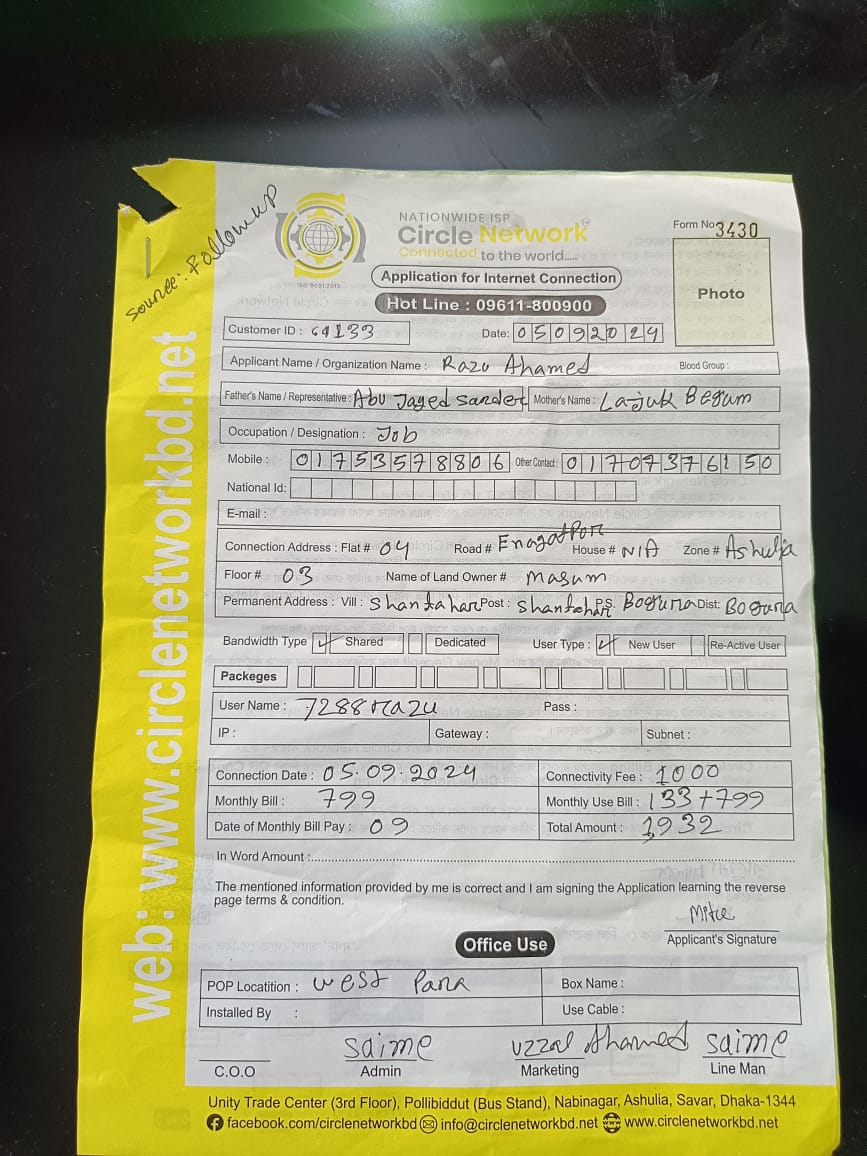 Source: Followup
NATIONWIDE ISP
Circle Network
Connected to the world.....
ISO 9001:2015
Application for Internet Connection
Hot Line : 09611-800900
Form No 3430
Photo
Customer ID : 64133 Date: 05092024
Applicant Name / Organization Name : Razu Ahamed Blood Group :
Father's Name / Representative : Abu Jayed Sarder Mother's Name : Lajuk Begum
Occupation / Designation : Job
Mobile : 01753578806 Other Contact : 01707376150
National Id:
E-mail :
Connection Address : Flat # 04 Road # Enayatpor House # N/A Zone # Ashulia
Floor # 03 Name of Land Owner # masum
Permanent Address : Vill : Shantahar Post : Shantahar P.S: Bogura Dist: Bogura
Bandwidth Type Shared Dedicated User Type : New User Re-Active User
Packeges
User Name : 7288razu Pass :
IP : Gateway : Subnet :
Connection Date : 05.09.2024 Connectivity Fee : 1000
Monthly Bill : 799 Monthly Use Bill : 133+799
Date of Monthly Bill Pay : 09 Total Amount : 1,932
In Word Amount :
The mentioned information provided by me is correct and I am signing the Application learning the reverse
page terms & condition.
Applicant's Signature
Office Use
POP Locatition : west Para Box Name :
Installed By : Use Cable :
saime uzzal Ahamed saime
C.O.O Admin Marketing Line Man
Unity Trade Center (3rd Floor), Pollibiddut (Bus Stand), Nabinagar, Ashulia, Savar, Dhaka-1344
facebook.com/circlenetworkbd info@circlenetworkbd.net www.circlenetworkbd.net
web: www.circlenetworkbd.net